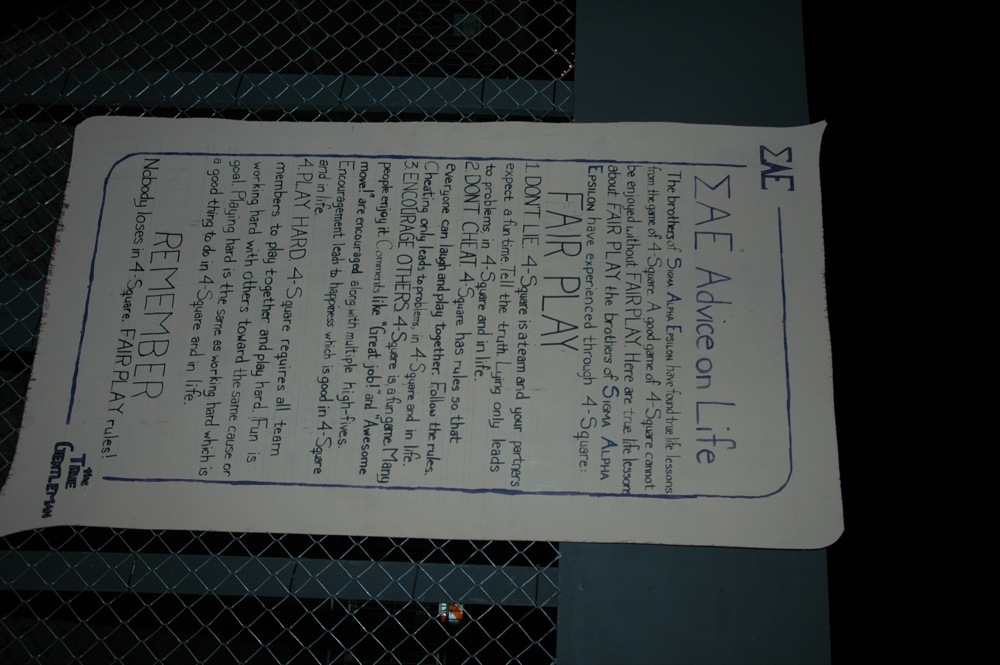 ΣAE
ΣAE Advice on Life
The brothers of SIGMA ALPHA EPSILON have found true life lessons
from the game of 4-Square. A good game of 4-Square cannot
be enjoyed without FAIR PLAY. Here are true life lessons
about FAIR PLAY the brothers of SIGMA ALPHA
EPSILON have experienced through 4-Square:
FAIR PLAY
1. DON'T LIE. 4-Square is a team and your partners
expect a fun time. Tell the truth. Lying only leads
to problems, in 4-Square and in life.
2. DON'T CHEAT. 4-Square has rules so that
everyone can laugh and play together. Follow the rules.
Cheating only leads to problems, in 4-Square and in life.
3. ENCOURAGE OTHERS. 4-Square is a fun game. Many
people enjoy it. Comments like "Great job!" and "Awesome
move!" are encouraged along with multiple high-fives.
Encouragement leads to happiness which is good in 4-Square
and in life.
4. PLAY HARD. 4-Square requires all team
members to play together and play hard. Fun is
working hard with others toward the same cause or
goal. Playing hard is the same as working hard which is
a good thing to do in 4-Square and in life.
REMEMBER
Nobody loses in 4-Square. FAIR PLAY rules!
the
TRUE
GENTLEMAN